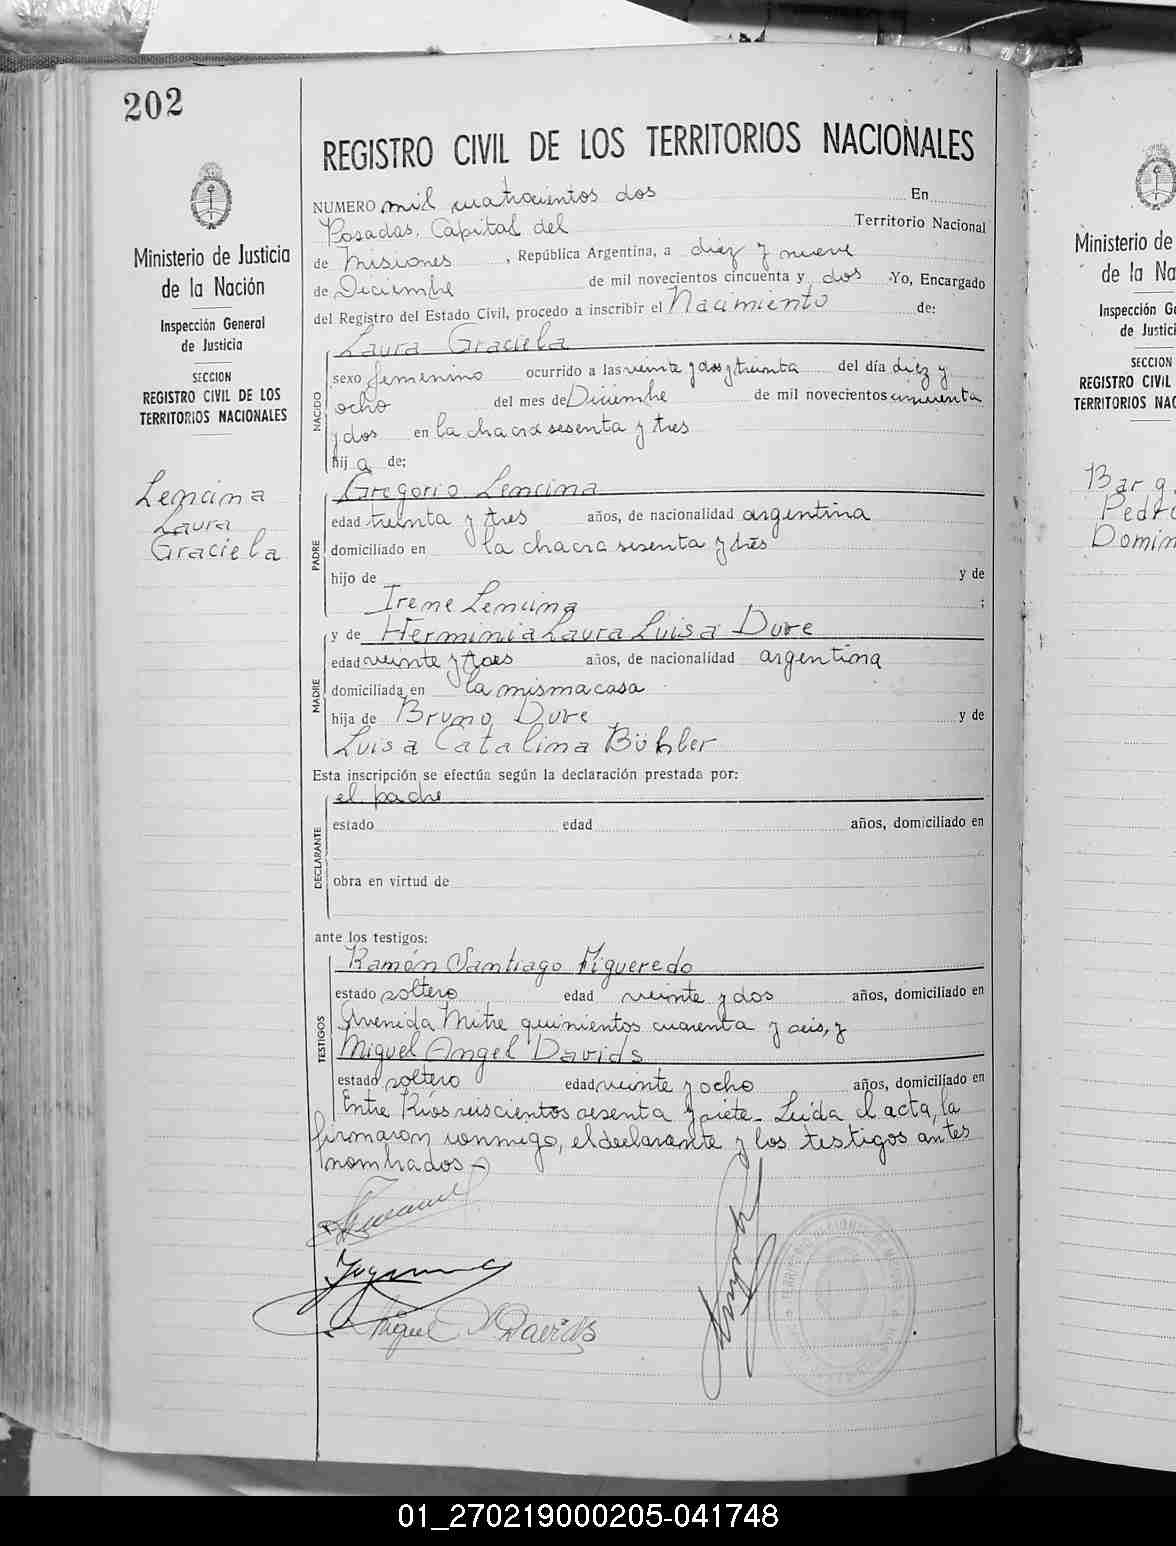 202
REGISTRO CIVIL DE LOS TERRITORIOS NACIONALES
Ministerio de Justicia
de la Nación
Inspección General
de Justicia
SECCION
REGISTRO CIVIL DE LOS
TERRITORIOS NACIONALES
Lencina
Laura
Graciela
NUMERO mil cuatrocientos dos En
Posadas, Capital del Territorio Nacional
de Misiones, República Argentina, a diez y nueve
de Diciembre de mil novecientos cincuenta y dos Yo, Encargado
del Registro del Estado Civil, procedo a inscribir el Nacimiento de:
NACIDO
Laura Graciela
sexo femenino ocurrido a las veinte y dos y treinta del día diez y
ocho del mes de Diciembre de mil novecientos cincuenta
y dos en la chacra sesenta y tres
hij a de:
PADRE
Gregorio Lencina
edad treinta y tres años, de nacionalidad argentina
domiciliado en la chacra sesenta y tres
hijo de y de
Irene Lencina ;
MADRE
y de Herminia Laura Luisa Dure
edad veinte y tres años, de nacionalidad argentina
domiciliada en la misma casa
hija de Bruno Dure y de
Luisa Catalina Böhler
Esta inscripción se efectúa según la declaración prestada por:
DECLARANTE
el padre
estado edad años, domiciliado en
obra en virtud de
ante los testigos:
TESTIGOS
Ramón Santiago Figueredo
estado soltero edad veinte y dos años, domiciliado en
Avenida Mitre quinientos cuarenta y seis, y
Miguel Angel Davids
estado soltero edad veinte y ocho años, domiciliado en
Entre Ríos seiscientos sesenta y siete - Leída el acta, la
firmaron conmigo, el declarante y los testigos antes
nombrados -
Miguel A Davids
Ministerio de
de la Na
Inspección Ge
de Justici
SECCION
REGISTRO CIVIL
TERRITORIOS NAC
Barg
Pedro
Domin
01_270219000205-041748